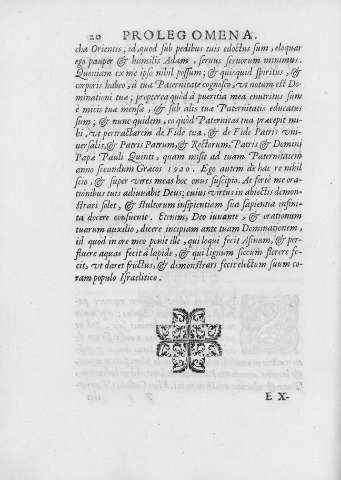 20 PROLEGOMENA.
chæ Orientis; id, quod sub pedibus tuis edoctus sum, eloquar
ego pauper & humilis Adam, seruus seruorum minimus.
Quoniam ex me ipso nihil possum; & quicquid spiritus, &
corporis habeo, à tua Paternitate cognosco, vt notum est Do-
minationi tuæ; propterea quòd à pueritia mea enutritus sum
è micis tuæ mensæ, & sub alis tuæ Paternitatis educatus
sum; & nunc quidem, eo quòd Paternitas tua præcepit mi-
hi, vt pertractarem de Fide tua, & de Fide Patris vni-
uersalis, & Patris Patrum, & Rectorum, Patris & Domini
Papæ Pauli Quinti, quam misit ad tuam Paternitatem
anno secundum Græcos 1920. Ego autem de hac re nihil
scio, & super vires meas hoc onus suscipio. At fortè me ora-
tionibus tuis adiuuabit Deus, cuius virtus in abiectis demon-
strari solet, & stultorum insipientiam sua sapientia infini-
ta docere consueuit. Etenim, Deo iuuante, & orationum
tuarum auxilio, dicere incipiam ante tuam Dominationem,
id quod in ore meo ponit ille, qui loqui fecit Asinam, & per-
fluere aquas fecit à lapide, & qui lignum siccum florere fe-
cit, vt daret fructus, & demonstrari fecit electum suum co-
ram populo Israelitico.
EX-